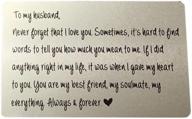 To my husband,
Never forget that I love you. Sometimes, it's hard to find
words to tell you how much you mean to me. If I did
anything right in my life, it was when I gave my heart
to you. You are my best friend, my soulmate, my
everything. Always & forever. ♥